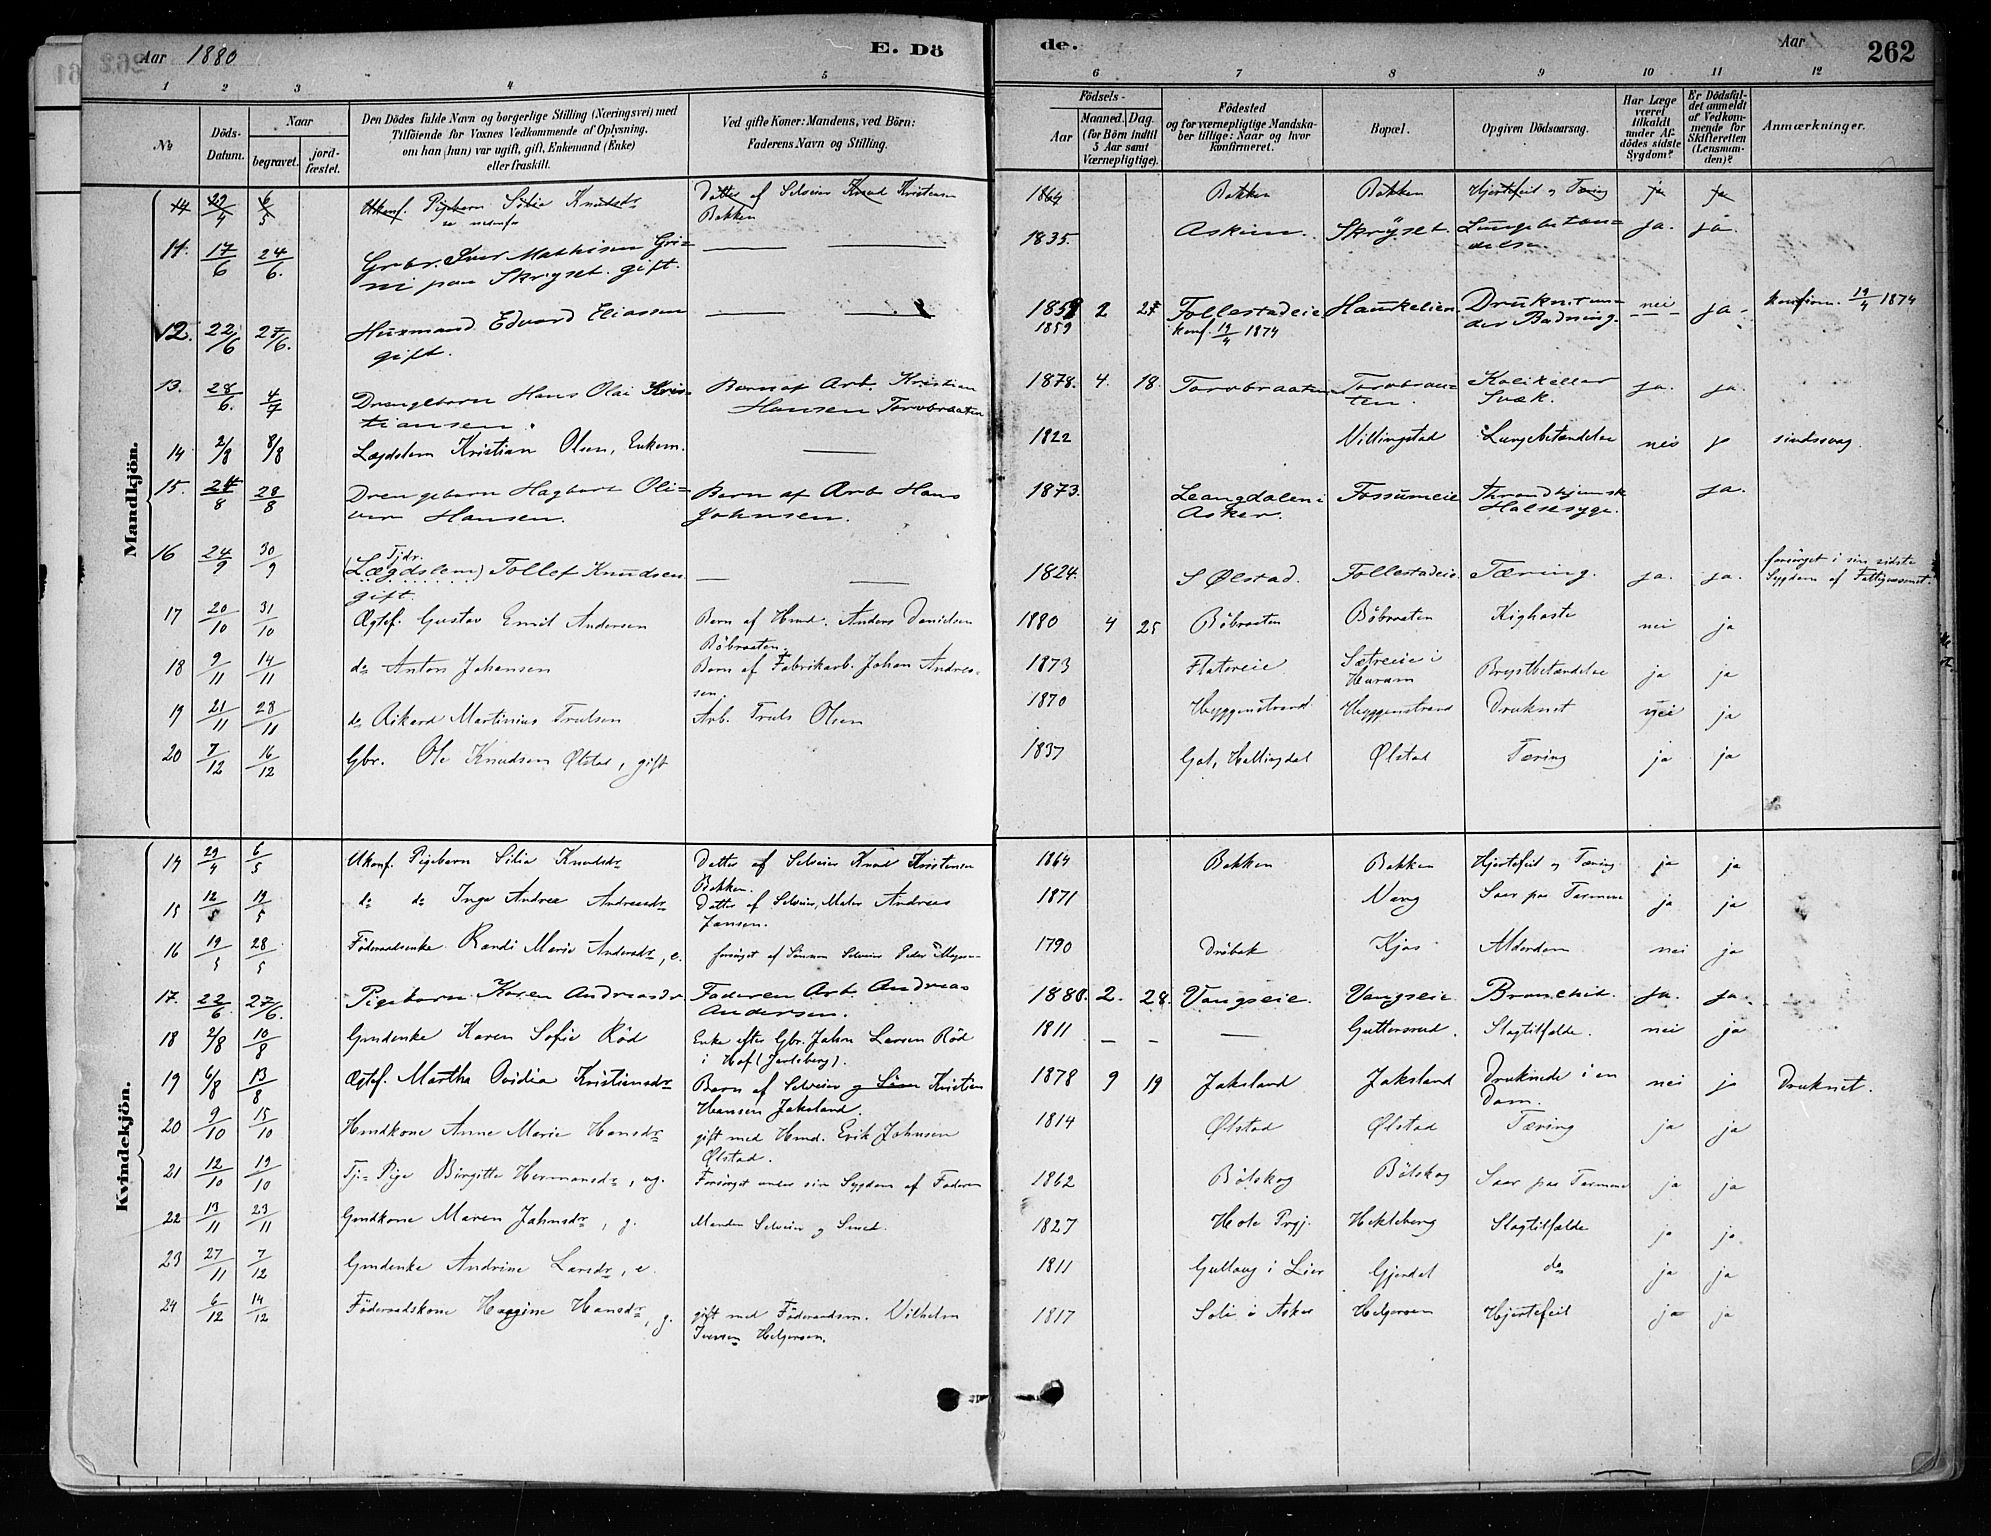 Aar 1880 E. Dö de. Aar 262
1 2 3 4 5 6 7 8 9 10 11 12
No Döds-Datum. Naar begravet. jordfæstet. Den Dödes fulde Navn og borgerlige Stilling (Næringsvei) med Tilföiende for Voxnes Vedkommende af Oplysning, om han (hun) var ugift, gift, Enkemand (Enke) eller fraskilt. Ved gifte Koner: Mandens, ved Börn: Faderens Navn og Stilling. Födsels- Aar Maaned. Dag. (for Börn indtil 5 Aar samt Værnepligtige). Födested og for værnepligtige Mandskaber tillige: Naar og hvor konfirmeret. Bopæl. Opgiven Dödsaarsag. Har Læge været tilkaldt under Afdödes sidste Sygdom? Er Dödsfaldet anmeldt af Vedkommende for Skifteretten (Lensmanden)? Anmærkninger.
Mandkjön.
14 29/4 6/5 Ukonf. Pigebarn Silia Knudsdr Datter af Selveier Knud Kristensen Bakken 1864 Bakken Bakken Hjertefeil og Tæring ja ja
se nedenfor
11. 17/6 24/6. Grbr. Iver Mathisen Grini paa Skryset. gift. 1835. Asken. Skryset. Lungebetændelse. ja. ja.
12. 22/6 27/6. Husmand Edvard Eliassen gift. 1859 2 27 Tollestadeie Haukelien Druknet under Badning. nei ja. konfirm. 19/4 1874
1859 konf. 19/4 1874
13. 28/6. 4/7 Drengebarn Hans Olai Kristiansen. Barn af Arb. Kristian Hansen Torvbraaten 1878. 4. 18. Torvbraaten Torvbraaten. Kolikeller Svæk. ja. ja.
14 2/8 8/8 Lægdslem Kristian Olsen, Enkem. 1822 Nillingstad Lungebetændelse nei ja sindssvag.
15. 24/8 28/8 Drengebarn Hagbart Oliver Hansen. Barn af Arb Hans Johnsen. 1873. Leangdalen i Asker. Fossumeie Throndhjemsk Halssyge. ja.
16 24/9 30/9 Tjdr. (Lægdslem) Tollef Knudsen gift. 1824. S Ølstad. Tollestadeie. Tæring. ja. ja. forsørget i sin sidste Sygdom af Fattigvæsenet.
17 20/10 31/10 Ægtef. Gustav Emil Andersen Barn af Hmd. Anders Danielsen Böbraaten. 1880 4 25 Böbraaten Böbraaten Kighoste nei ja
18 9/11 14/11 do Anton Johansen Barn af Fabrikarb. Johan Andreassen. 1873 Flatereie Sætreeie i Hurum Brystbetændelse ja ja
19 21/11 28/11 do Rikard Martinius Trulsen Arb. Truls Olsen 1870 Hyggenstrand Hyggenstrand Druknet nei ja
20 7/12 16/12 Gbr. Ole Knudsen Ølstad, gift 1837 Gol, Hallingdal Ølstad Tæring ja ja
Kvindekjön.
14 29/4 6/5 Ukonf. Pigebarn Silia Knudsdr Datter af Selveier Knud Kristensen Bakken. 1864 Bakken Bakken Hjertefeil og Tæring ja ja
15 12/5 19/5 do do Inga Andrea Andreasdr Datter af Selveier, Maler Andreas Jansen. 1871 Nang Saar paa Tarmene ja ja
16 19/5 28/5 Föderaadsenke Randi Marie Andersdr, e. forsörget af Sönnen Selveier Peder 1790 Dröbak Kjos Alderdom nei ja
17. 22/6 27/6. Pigebarn. Karen Andreasdr Faderen Arb. Andreas Andersen. 1880. 2. 28. Vangseie. Vangseie. Bronchit. ja. ja.
18 2/8 10/8 Gmdenke Karen Sofie Röd Enke efter Gbr. Johan Larsen Röd i Hof (Jarlsberg). 1811 — — — Guttersrud. Slagtilfælde. nei ja
19 6/8 13/8 Ægtef. Martha Ovidia Kristiansdr Barn af Selveier Kristian Hansen Jaksland. 1878 9 19 Jaksland Jaksland Druknede i en Dam. nei ja Druknet.
20 9/10 15/10 Hmdkone Anne Marie Hansdr gift med Hmd. Erik Johnsen Ølstad. 1814 Ølstad Ølstad Tæring ja ja
21 12/10 19/10 Tj. Pige Birgitte Hermansdr, ug. Forsörget under sin Sygdom af Faderen 1862 Bölskog Bölskog Saar paa Tarmene ja ja
22 13/11 23/11 Gmdkone Maren Johnsdr, g. Manden Selveier og Smed. 1827 Hole Prgj. Hekleberg Slagtilfælde ja ja
23 27/11 7/12 Gmdenke Andrine Larsdr, e. 1811 Gullaug i Lier Gjerdal do ja ja
24 6/12 14/12 Föderaadskone Haagine Hansdr, g. gift med Föderaadsm. Vilhelm Iversen Helgersen. 1817 Soli i Asker Helgersen Hjertefeil ja ja